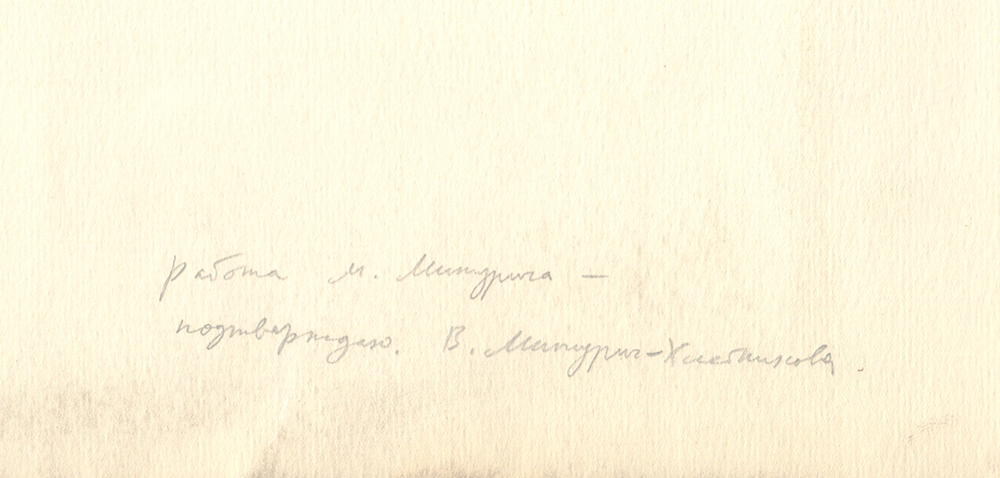 работа м. Митурича —
подтверждаю. В. Митурич-Хлебникова.